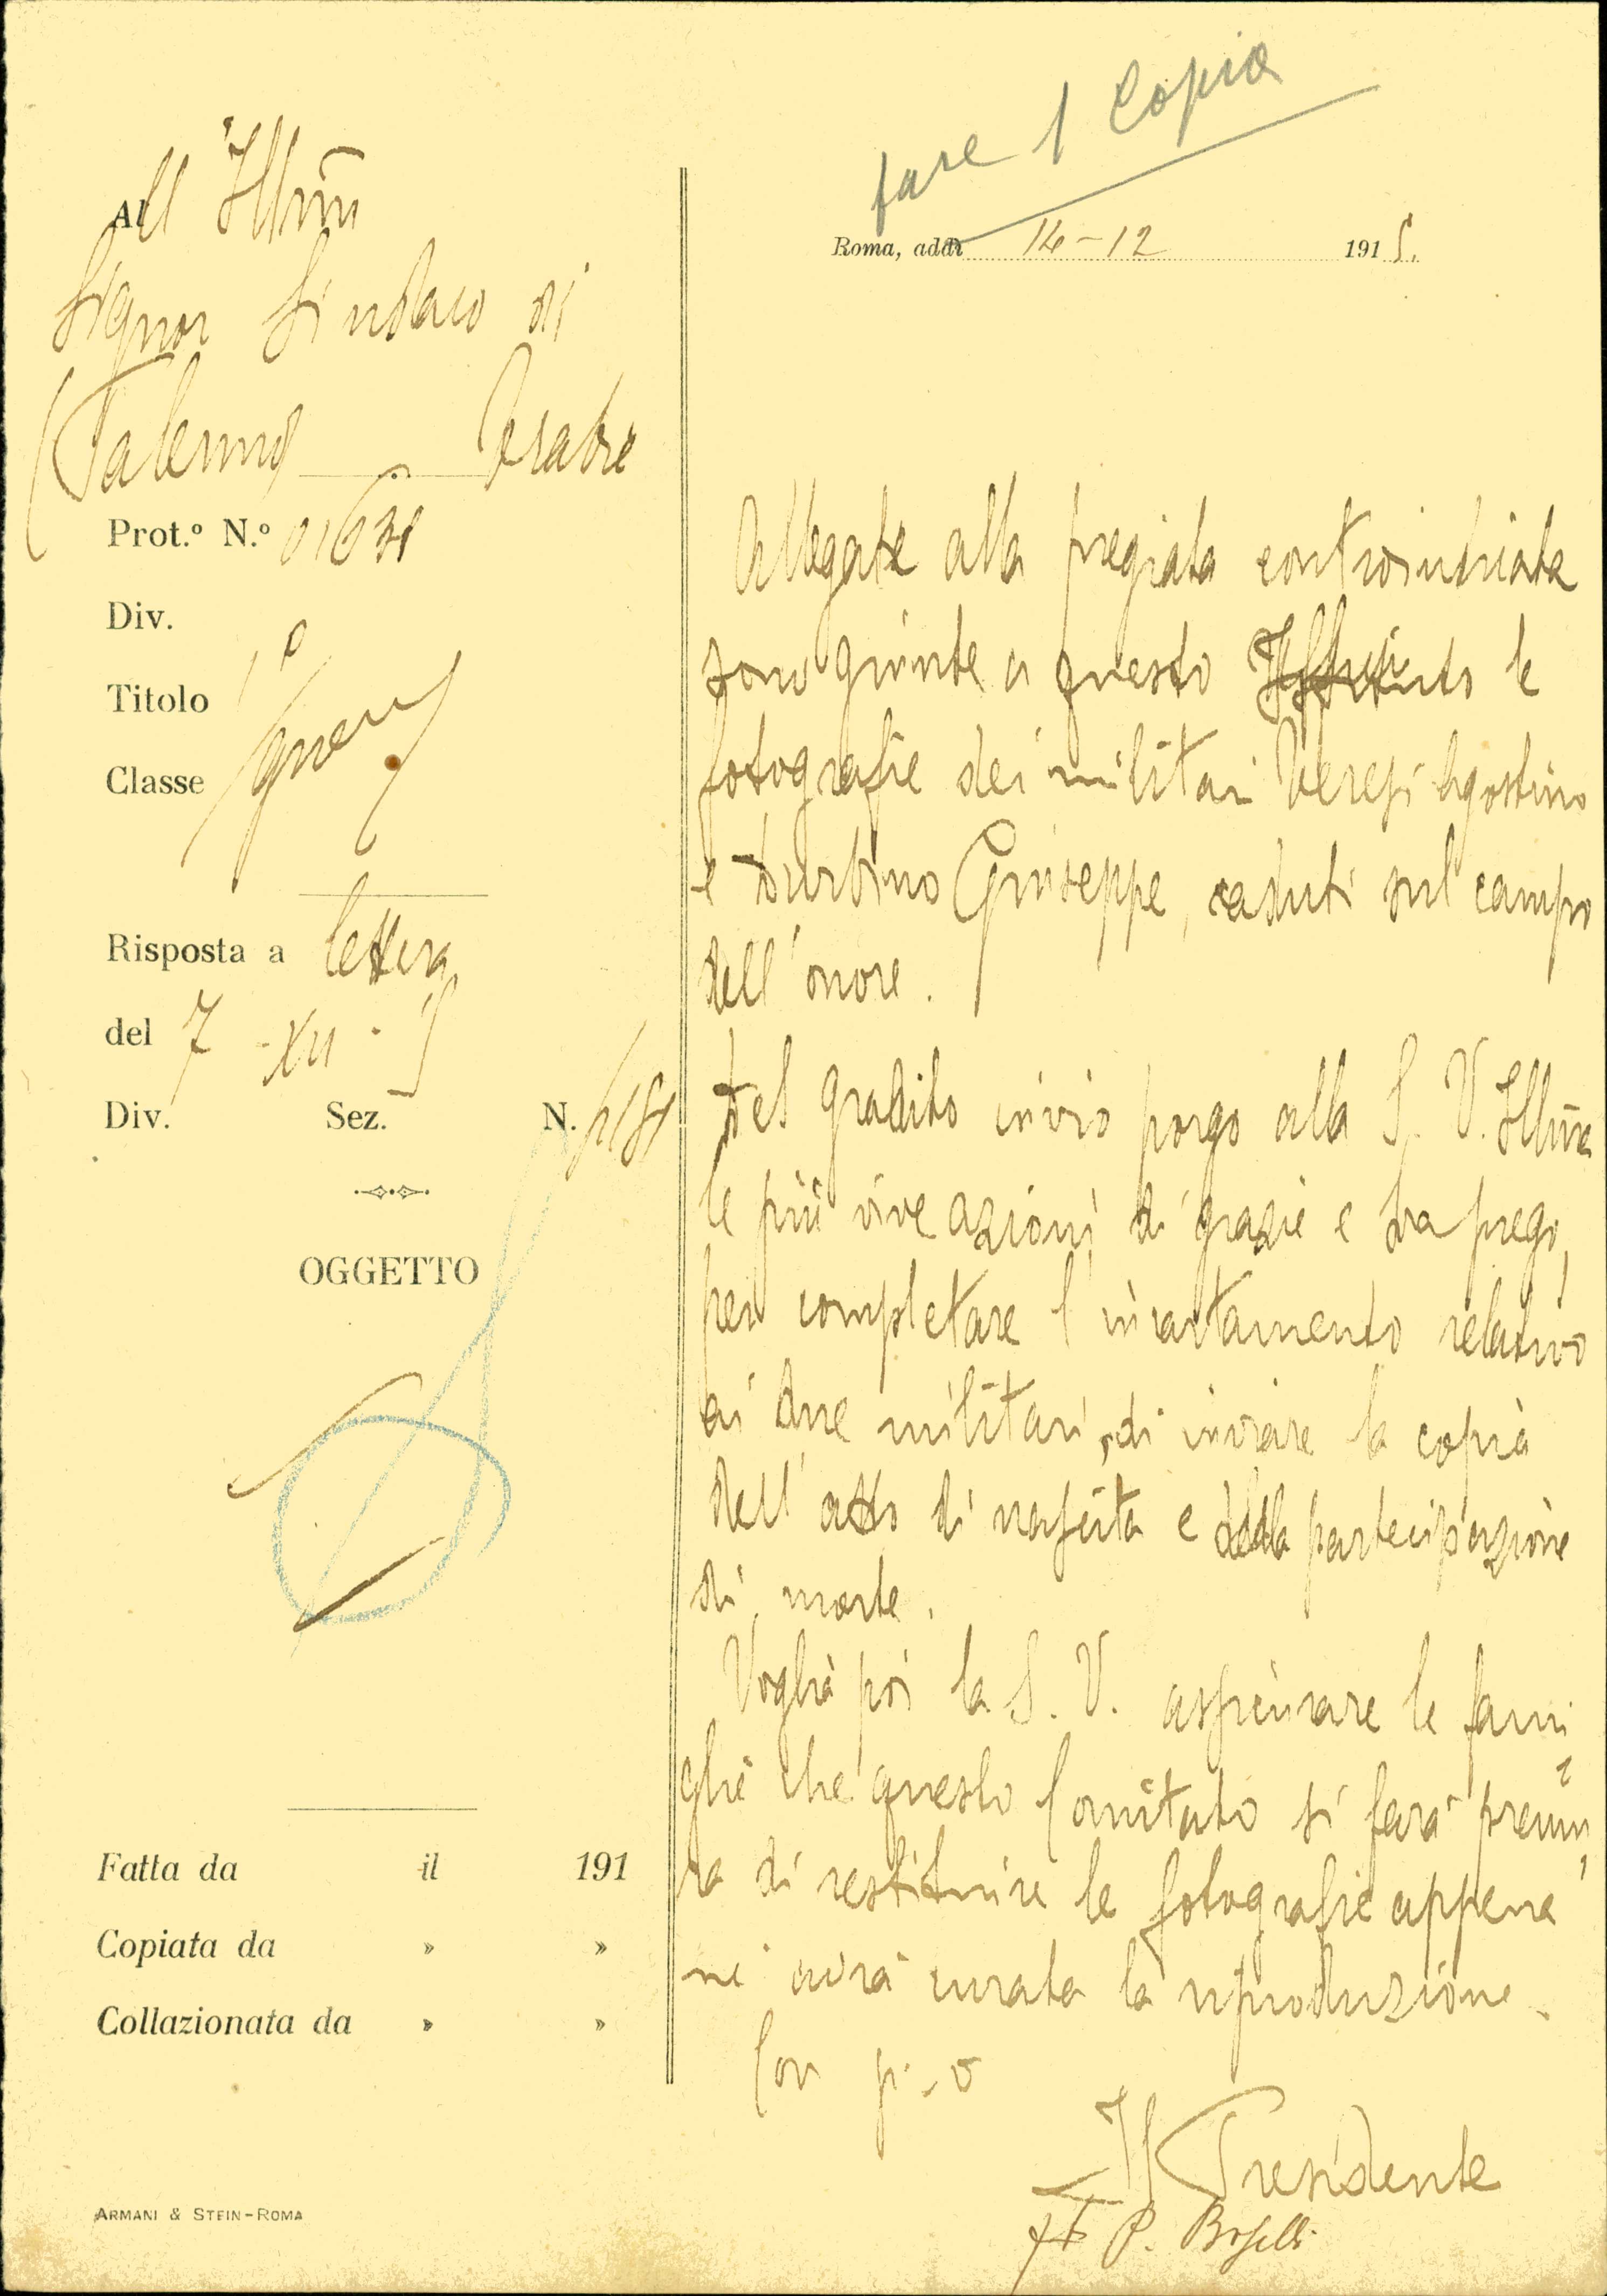 fare 1 Copia
Roma, addì 14-12 1915.
All Illm̄
Signor Sindaco di
Prot.º N.º 01631
Div.
Titolo
Classe
Risposta a lettera
del 7-XII-5
Div. Sez. N.
OGGETTO
Fatta da il 191
Copiata da » »
Collazionata da » »
ARMANI & STEIN-ROMA
Allegate alla pregiata controindicata
sono giunte a questo le
fotografie dei militari Agostino
e Durbino Giuseppe, caduti sul campo
dell'onore.
Del gradito invio porgo alla S. V. Illm̄a
le più vive azioni di grazie e La prego,
per completare l'incartamento relativo
ai due militari, di inviare la copia
dell'atto di nascita e della partecipazione
di morte.
Voglia poi la S. V. assicurare le fami
glie che questo Comitato si farà premu
ra di restituire le fotografie appena
ne avrà curata la riproduzione.
Con
Il Presidente
P. Boselli